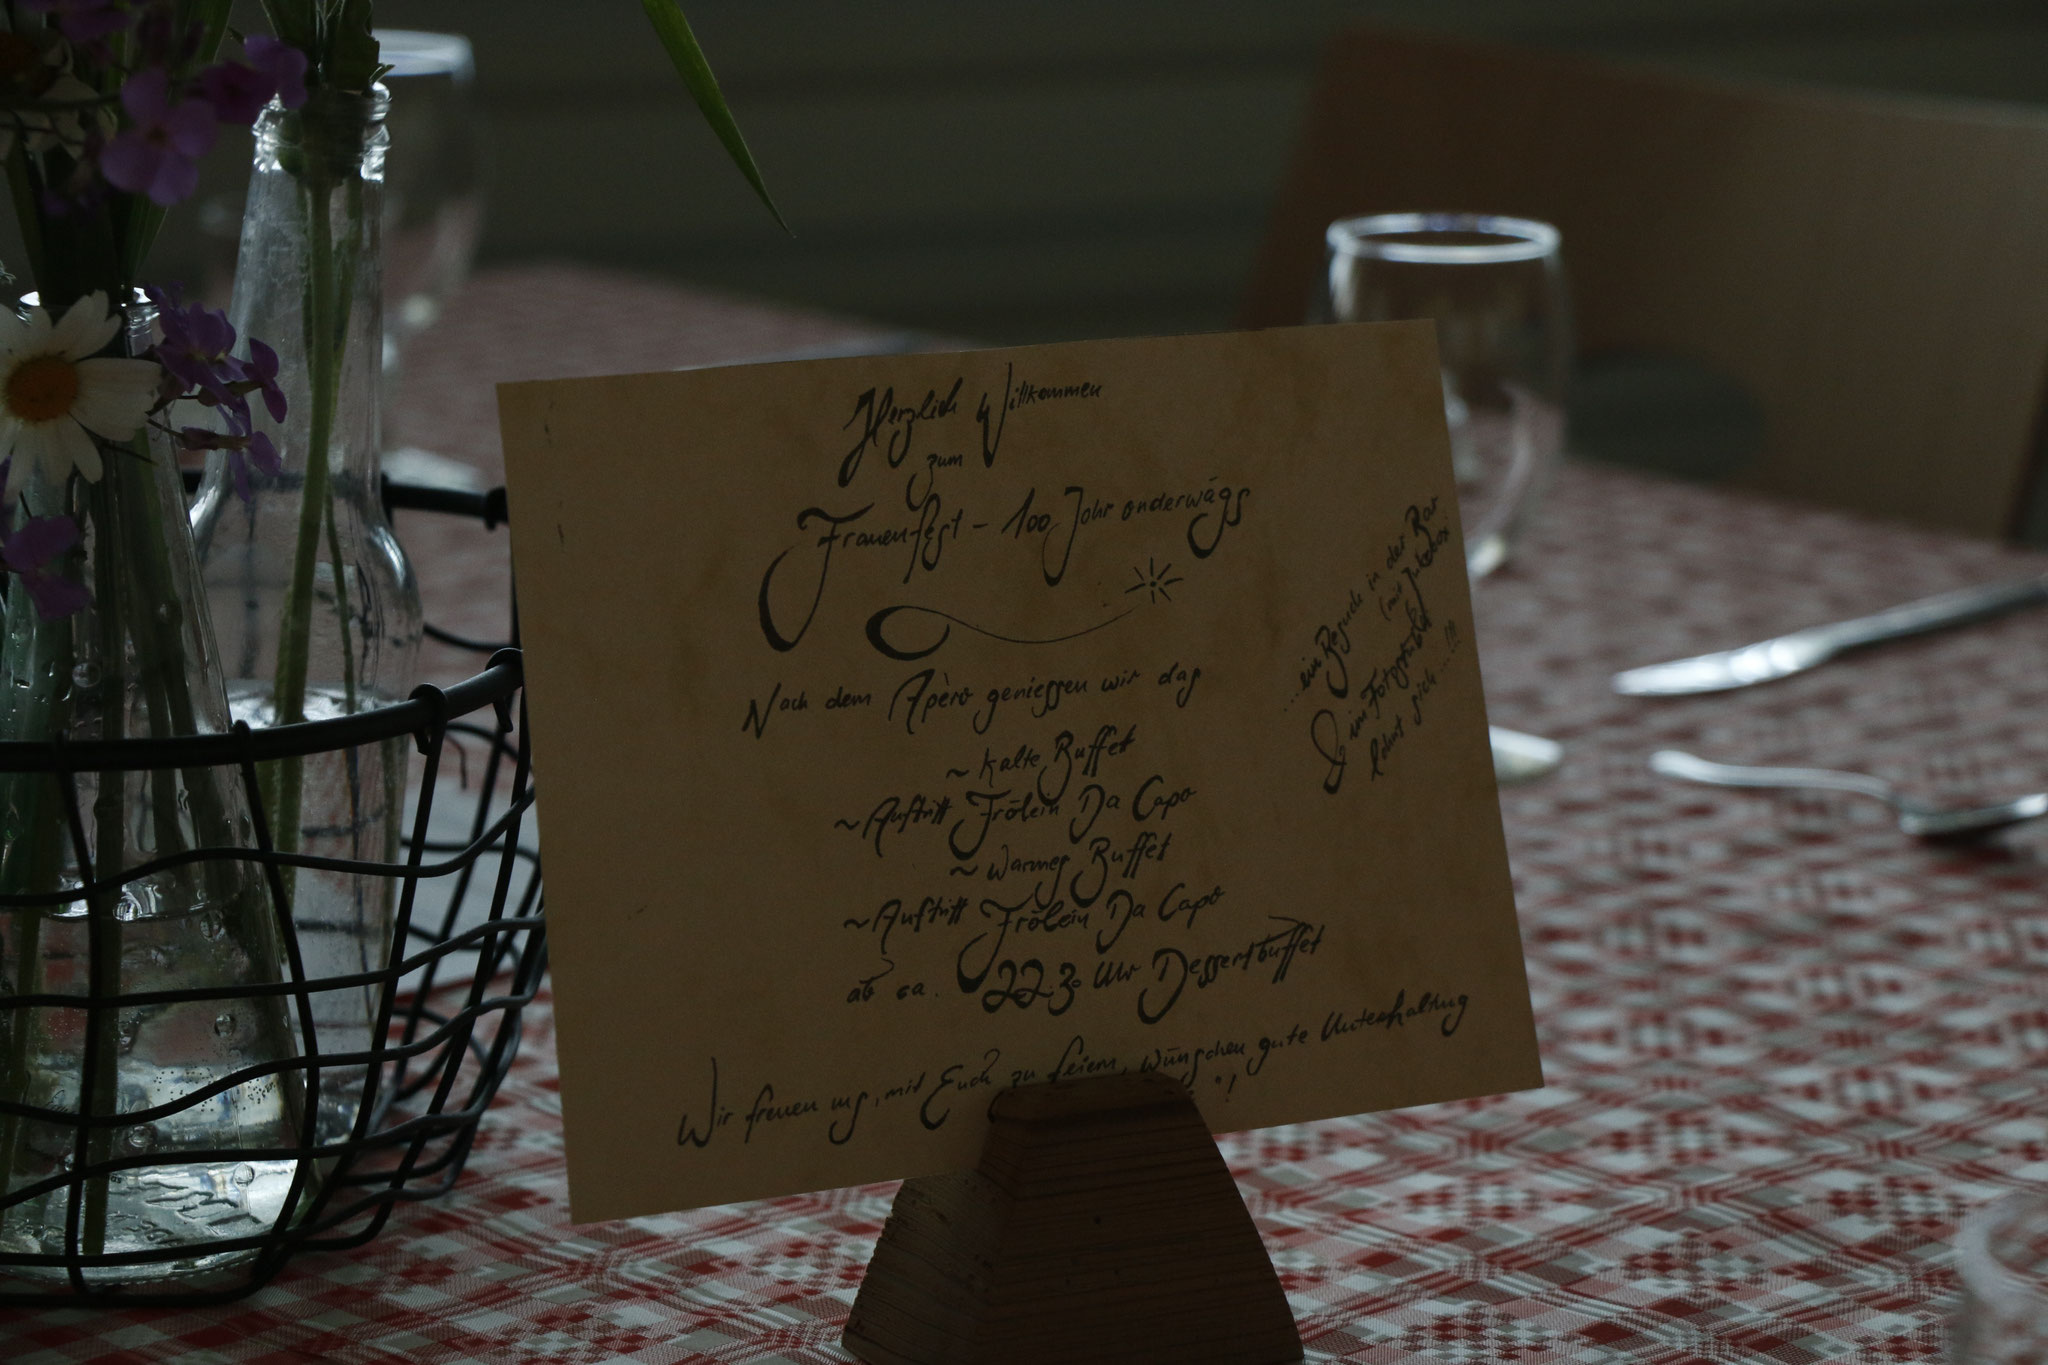 Herzlich Willkommen
zum
Frauenfest - 100 Johr onderwägs
Nach dem Apèro geniessen wir das
~ Kalte Buffet
~ Auftritt Frölein Da Capo
~ Warmes Buffet
~ Auftritt Frölein Da Capo
ab ca. 22.30 Uhr Dessertbuffet
Wir freuen uns, mit Euch zu feiern, wünschen gute Unterhaltung
"!
...ein Besuch in der Bar
(mit Jukebox)
& im Fotostübli
lohnt sich.....!!!